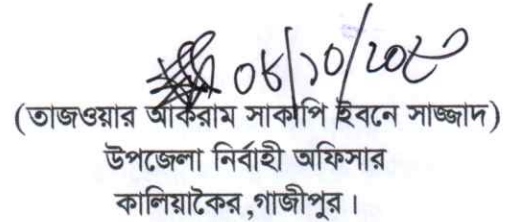 (তাজওয়ার আকরাম সাকাপি ইবনে সাজ্জাদ)
উপজেলা নির্বাহী অফিসার
কালিয়াকৈর ,গাজীপুর।